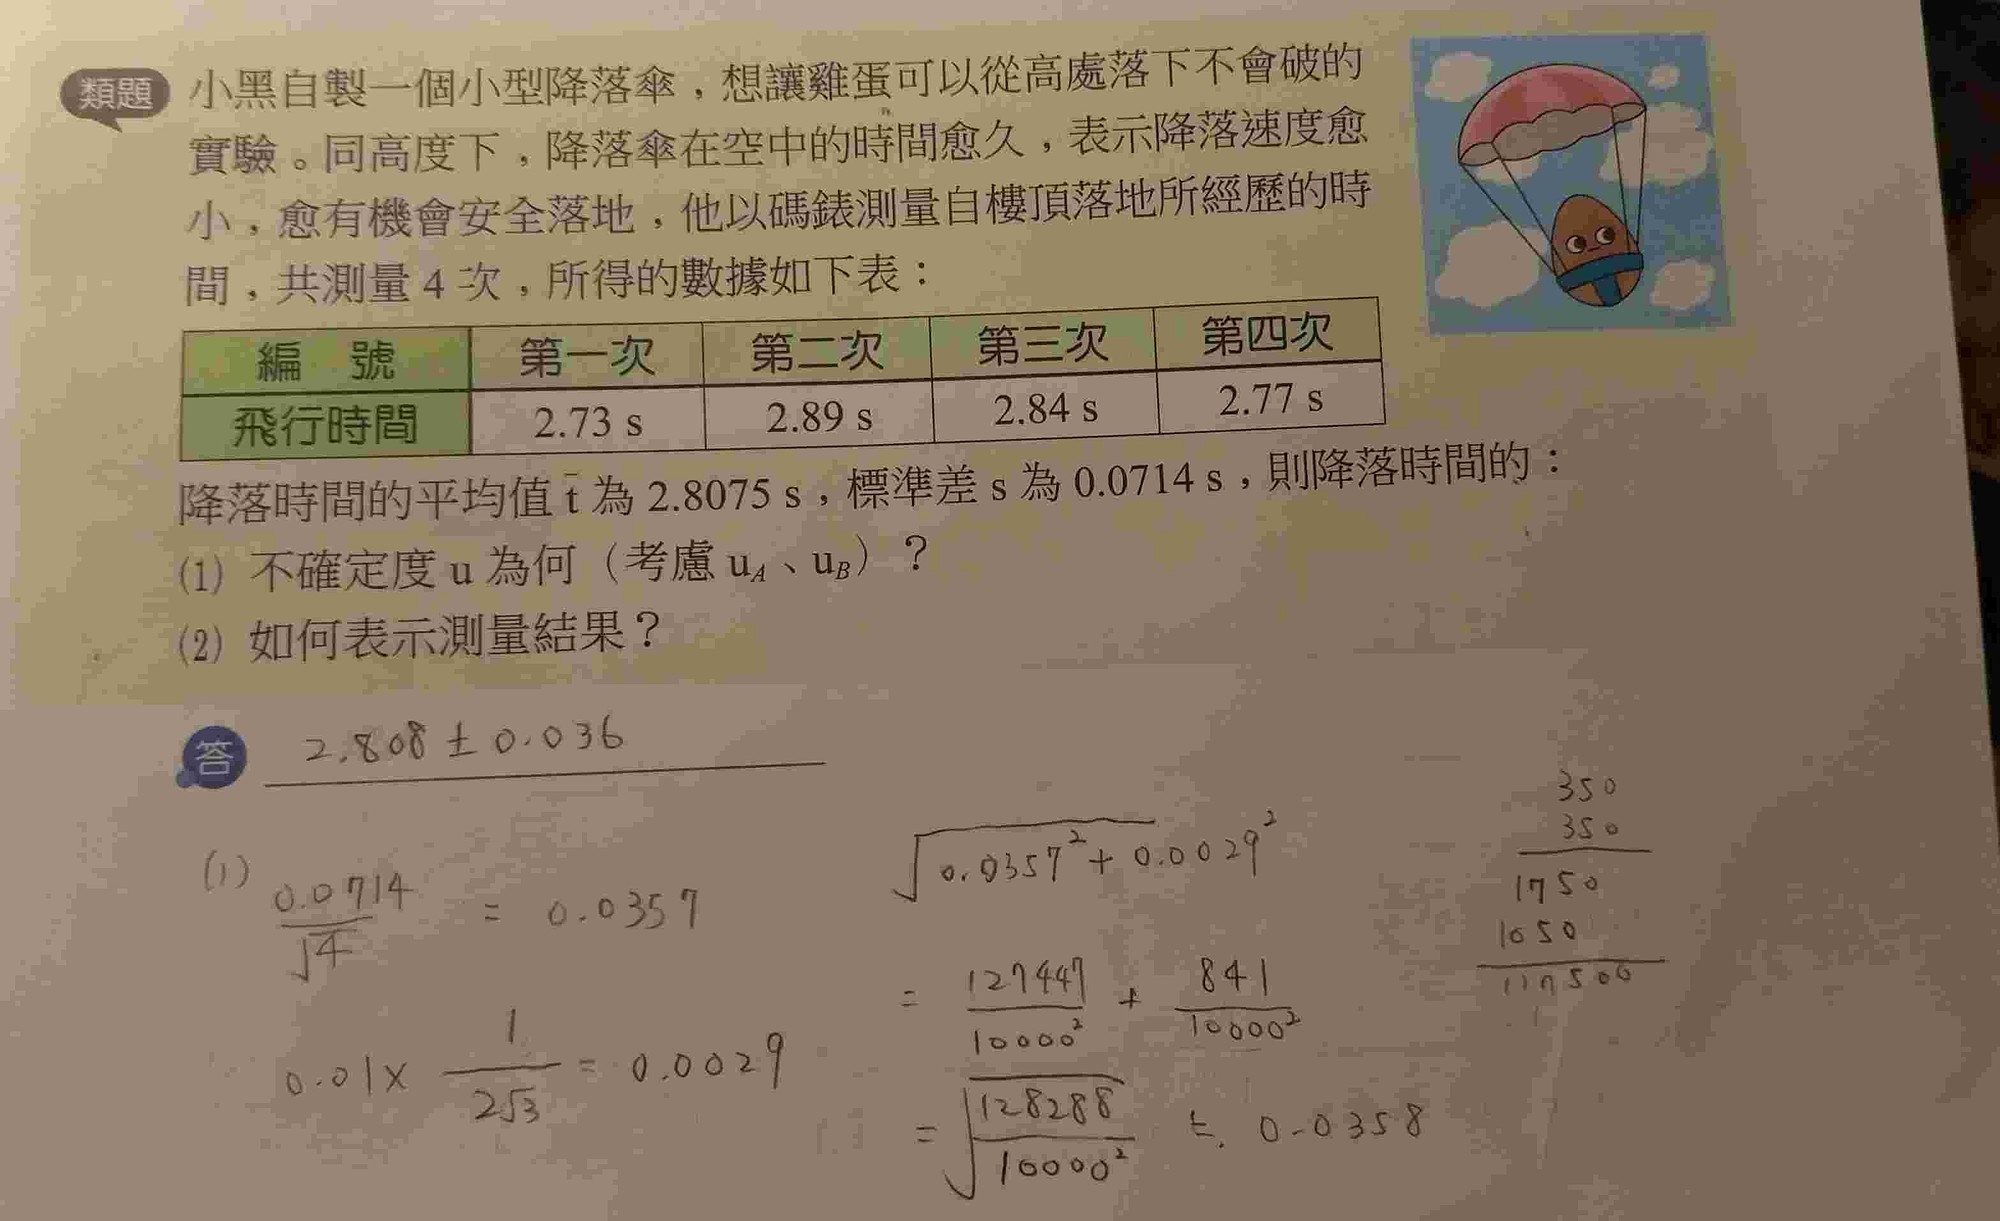 類題
小黑自製一個小型降落傘，想讓雞蛋可以從高處落下不會破的
實驗。同高度下，降落傘在空中的時間愈久，表示降落速度愈
小，愈有機會安全落地，他以碼錶測量自樓頂落地所經歷的時
間，共測量 4 次，所得的數據如下表：
編 號 第一次 第二次 第三次 第四次
飛行時間 2.73 s 2.89 s 2.84 s 2.77 s
降落時間的平均值 t̄ 為 2.8075 s，標準差 s 為 0.0714 s，則降落時間的：
(1) 不確定度 u 為何（考慮 uA、uB）？
(2) 如何表示測量結果？
答 2.808 ± 0.036
(1) 0.0714/√4 = 0.0357
0.01 × 1/2√3 = 0.0029
√0.0357² + 0.0029²
= 127447/10000² + 841/10000²
= √128288/10000² ≒ 0.0358
350
350
1750
1050
117500